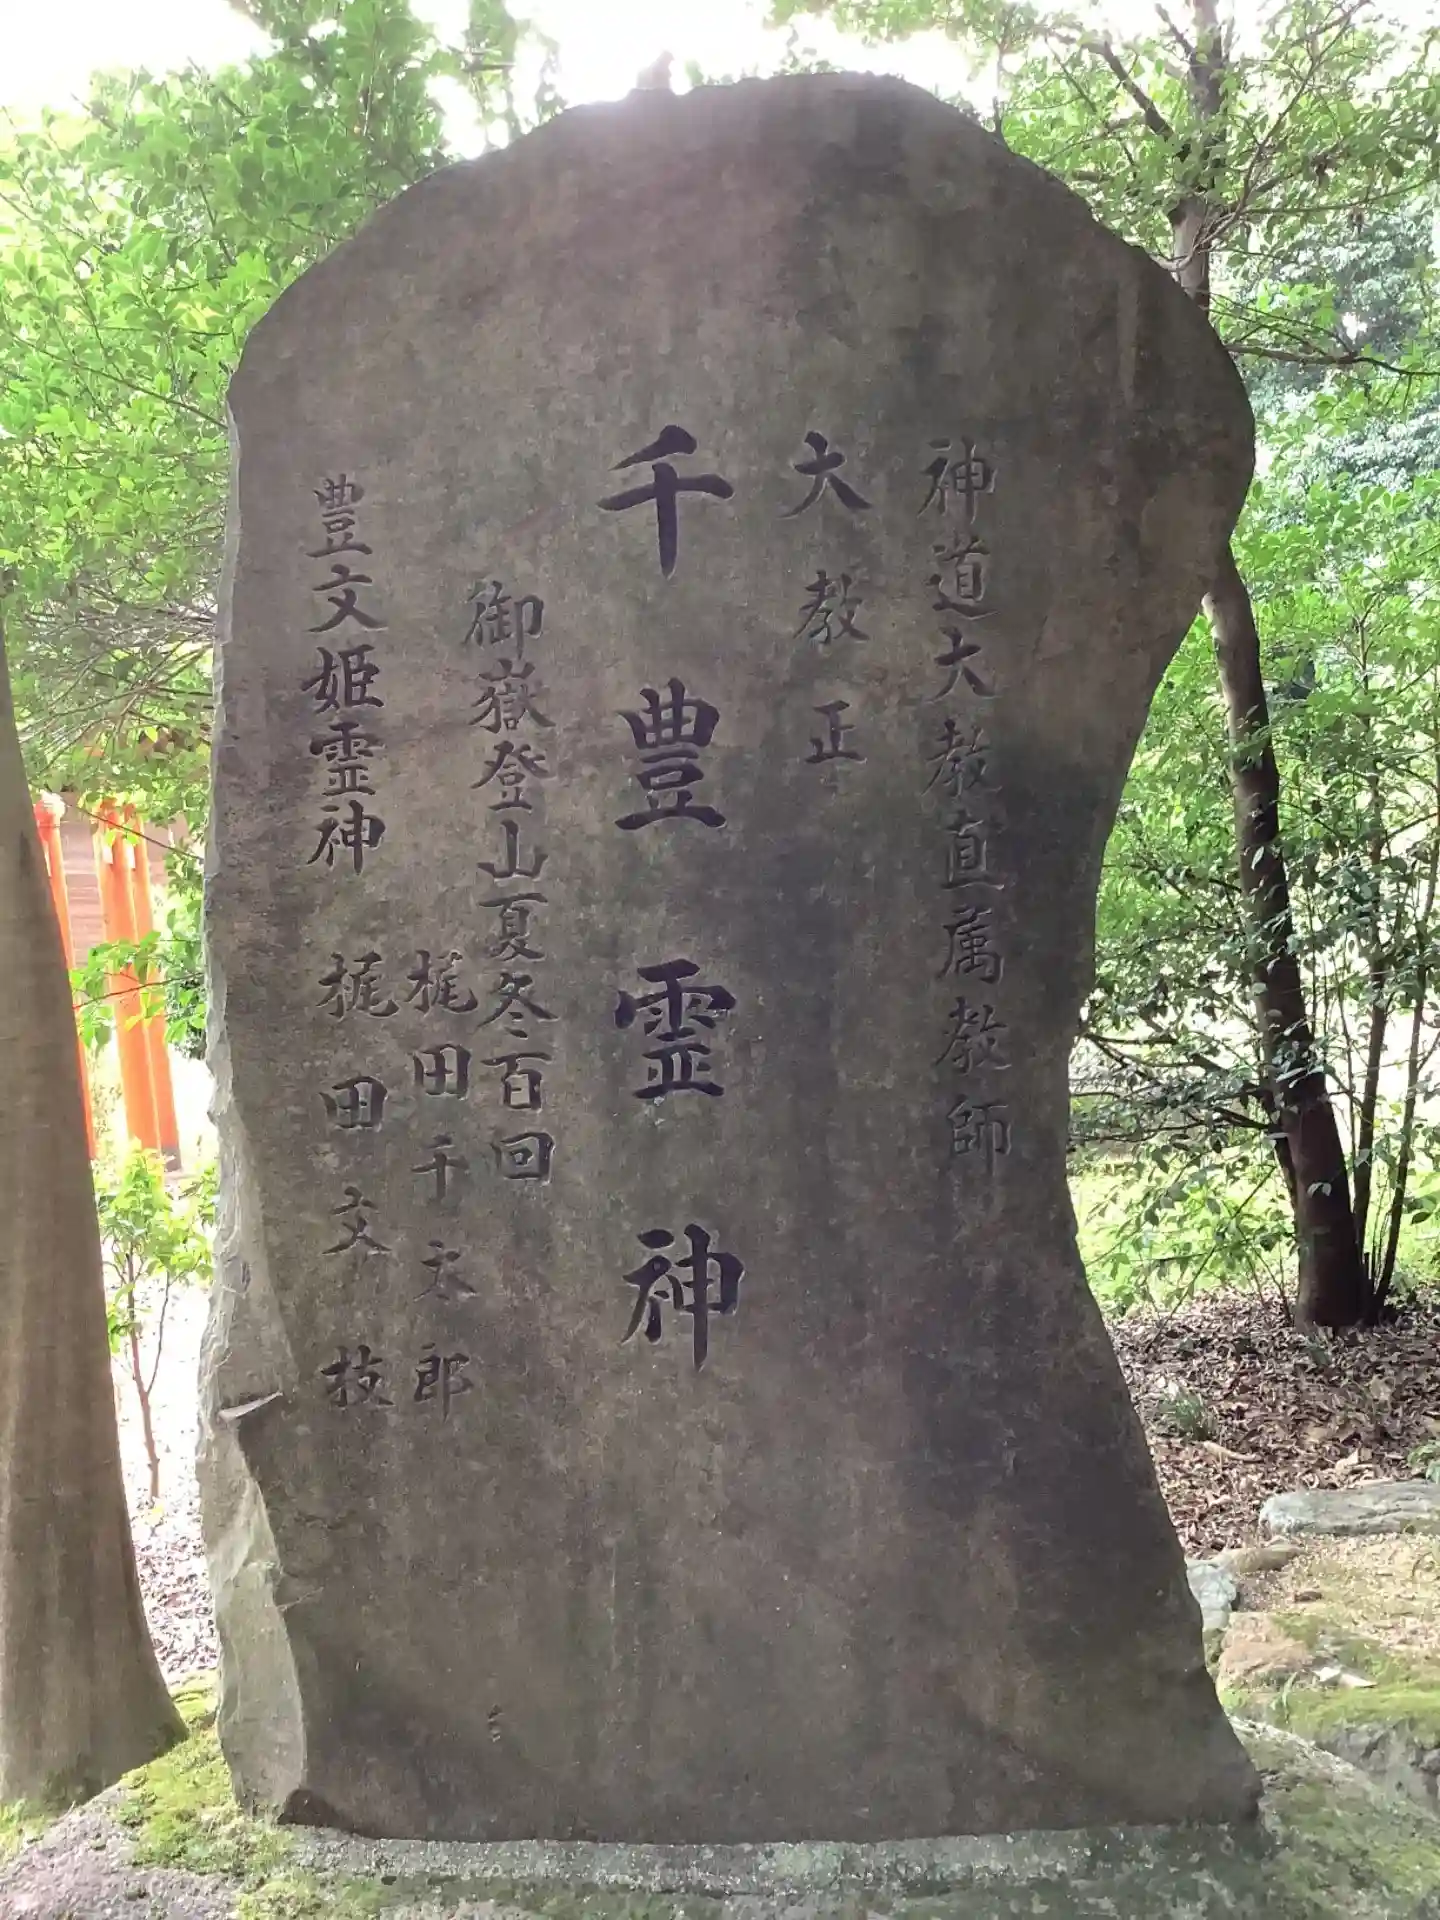 神道大教直属教師
大教正
千豊霊神
御嶽登山夏冬百回
梶田千太郎
豊文姫霊神 梶田文枝